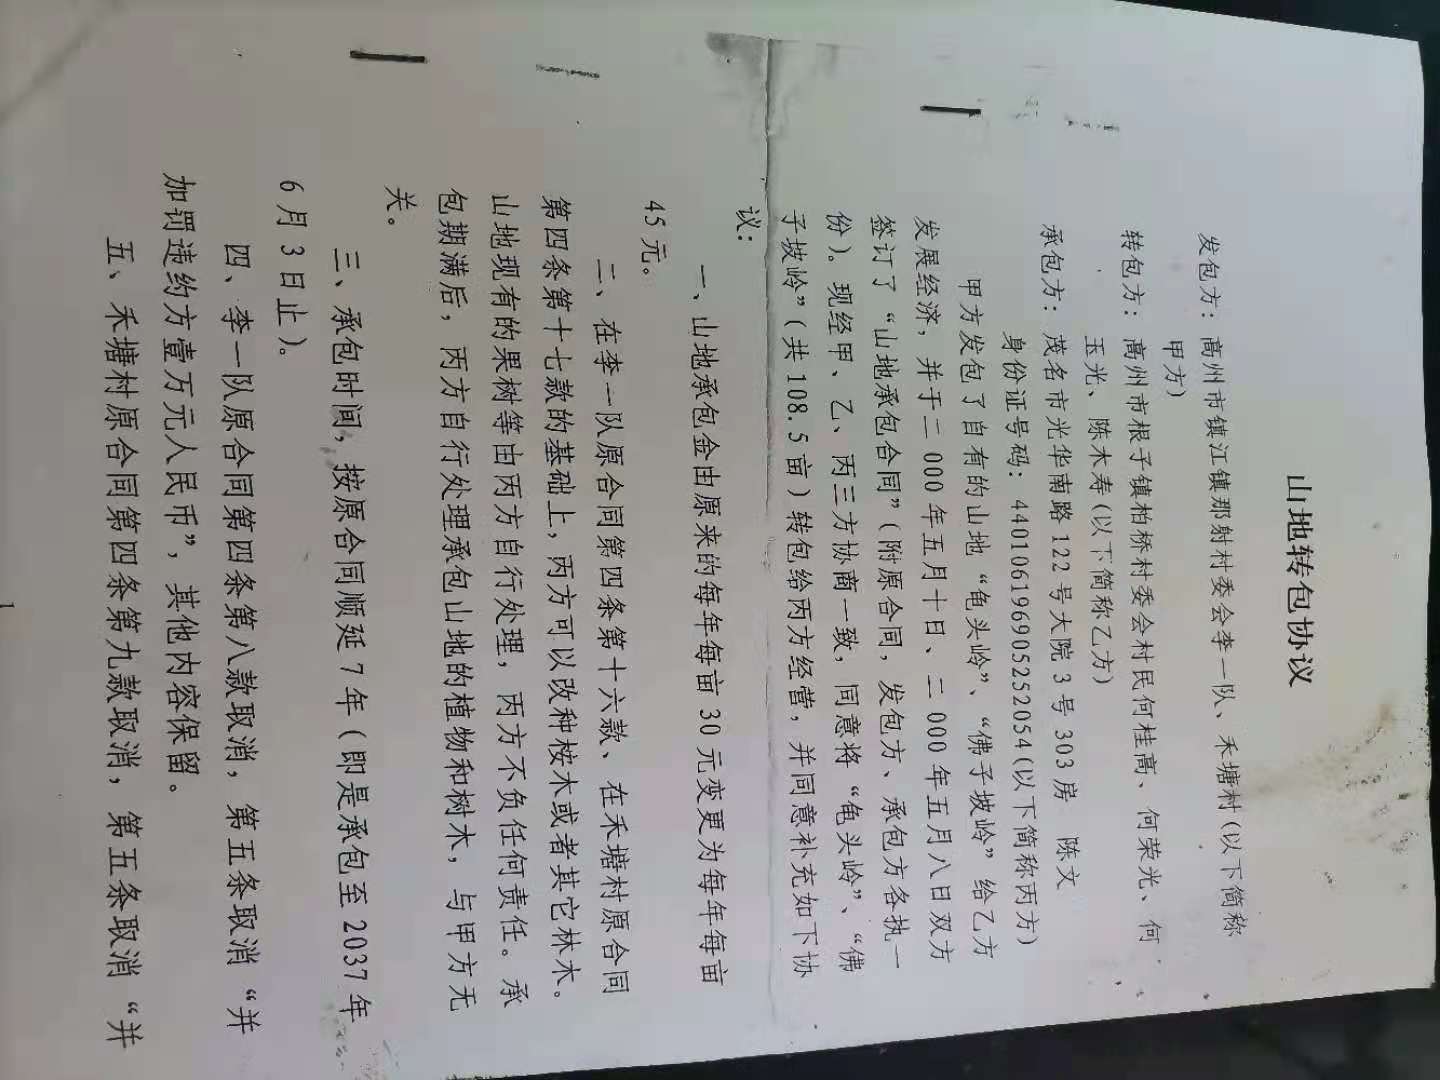 山地转包协议
发包方：高州市镇江镇那射村委会李一队、禾塘村(以下简称
甲方)
转包方：高州市根子镇柏桥村委会村民何桂高、何荣光、何
玉光、陈木寿(以下简称乙方)
承包方：茂名市光华南路122号大院3号303房 陈文
身份证号码：440106196905252054(以下简称丙方)
甲方发包了自有的山地“龟头岭”、“佛子坡岭”给乙方
发展经济，并于二000年五月十日、二000年五月八日双方
签订了“山地承包合同”(附原合同，发包方、承包方各执一
份)。现经甲、乙、丙三方协商一致，同意将“龟头岭”、“佛
子坡岭”(共108.5亩)转包给丙方经营，并同意补充如下协
议：
一、山地承包金由原来的每年每亩30元变更为每年每亩
45元。
二、在李一队原合同第四条第十六款、在禾塘村原合同
第四条第十七款的基础上，丙方可以改种桉木或者其它林木。
山地现有的果树等由丙方自行处理，丙方不负任何责任。承
包期满后，丙方自行处理承包山地的植物和树木，与甲方无
关。
三、承包时间，按原合同顺延7年(即是承包至2037年
6月3日止)。
四、李一队原合同第四条第八款取消，第五条取消“并
加罚违约方壹万元人民币”，其他内容保留。
五、禾塘村原合同第四条第九款取消，第五条取消“并
1